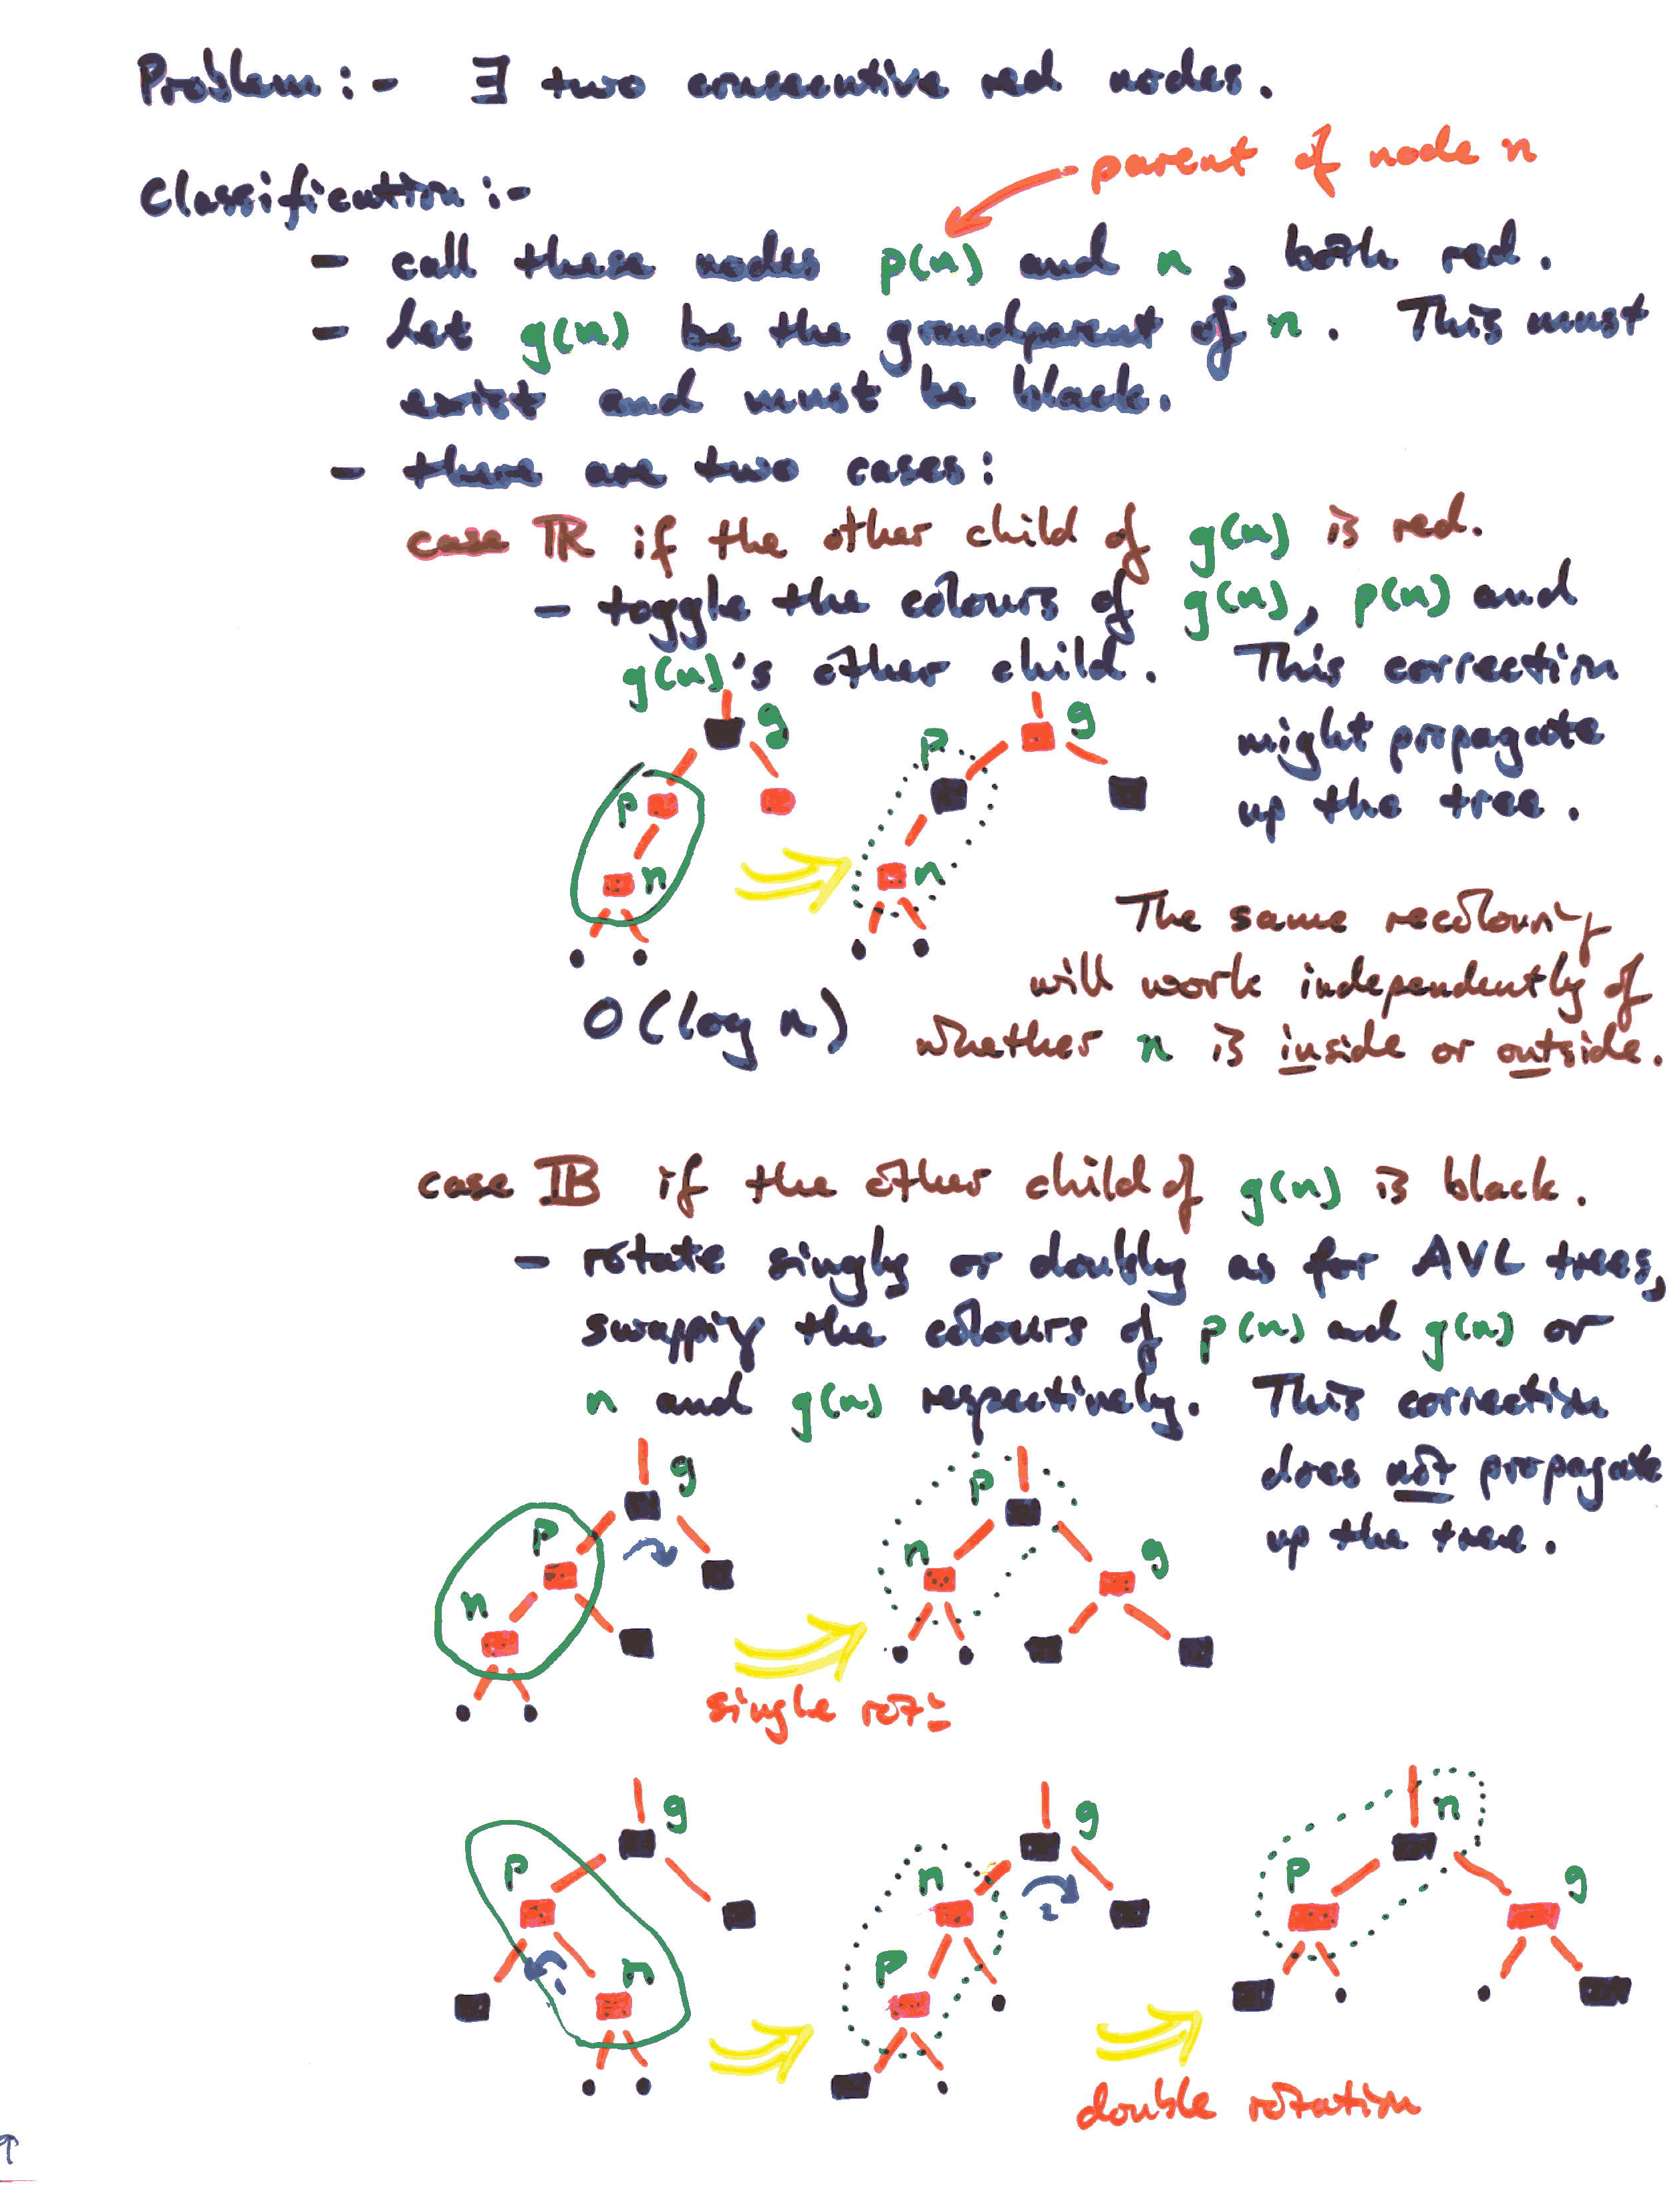 Problem :- ∃ two consecutive red nodes.
parent of node n
Classification :-
- call these nodes p(n) and n, both red.
- let g(n) be the grandparent of n. This must
exist and must be black.
- there are two cases:
case IR if the other child of g(n) is red.
- toggle the colours of g(n), p(n) and
g(n)'s other child. This correction
might propagate
up the tree.
g
p
n
p
g
n
The same recolouring
will work independently of
O(log n) whether n is inside or outside.
case IB if the other child of g(n) is black.
- rotate singly or doubly as for AVL trees,
swapping the colours of p(n) and g(n) or
n and g(n) respectively. This correction
does not propagate
up the tree.
g
p
n
p
n
g
single rotn
g
p
1
n
g
n
2
p
n
p
g
double rotation
↑